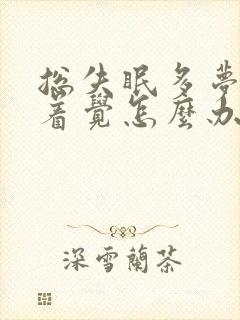 总失眠多夢
着覺怎麼办
深雪蘭茶